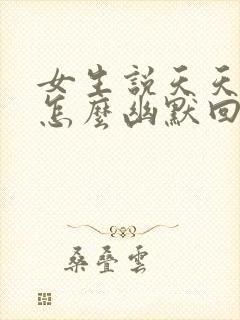 女生説天天
怎麼幽默回
桑疊雲